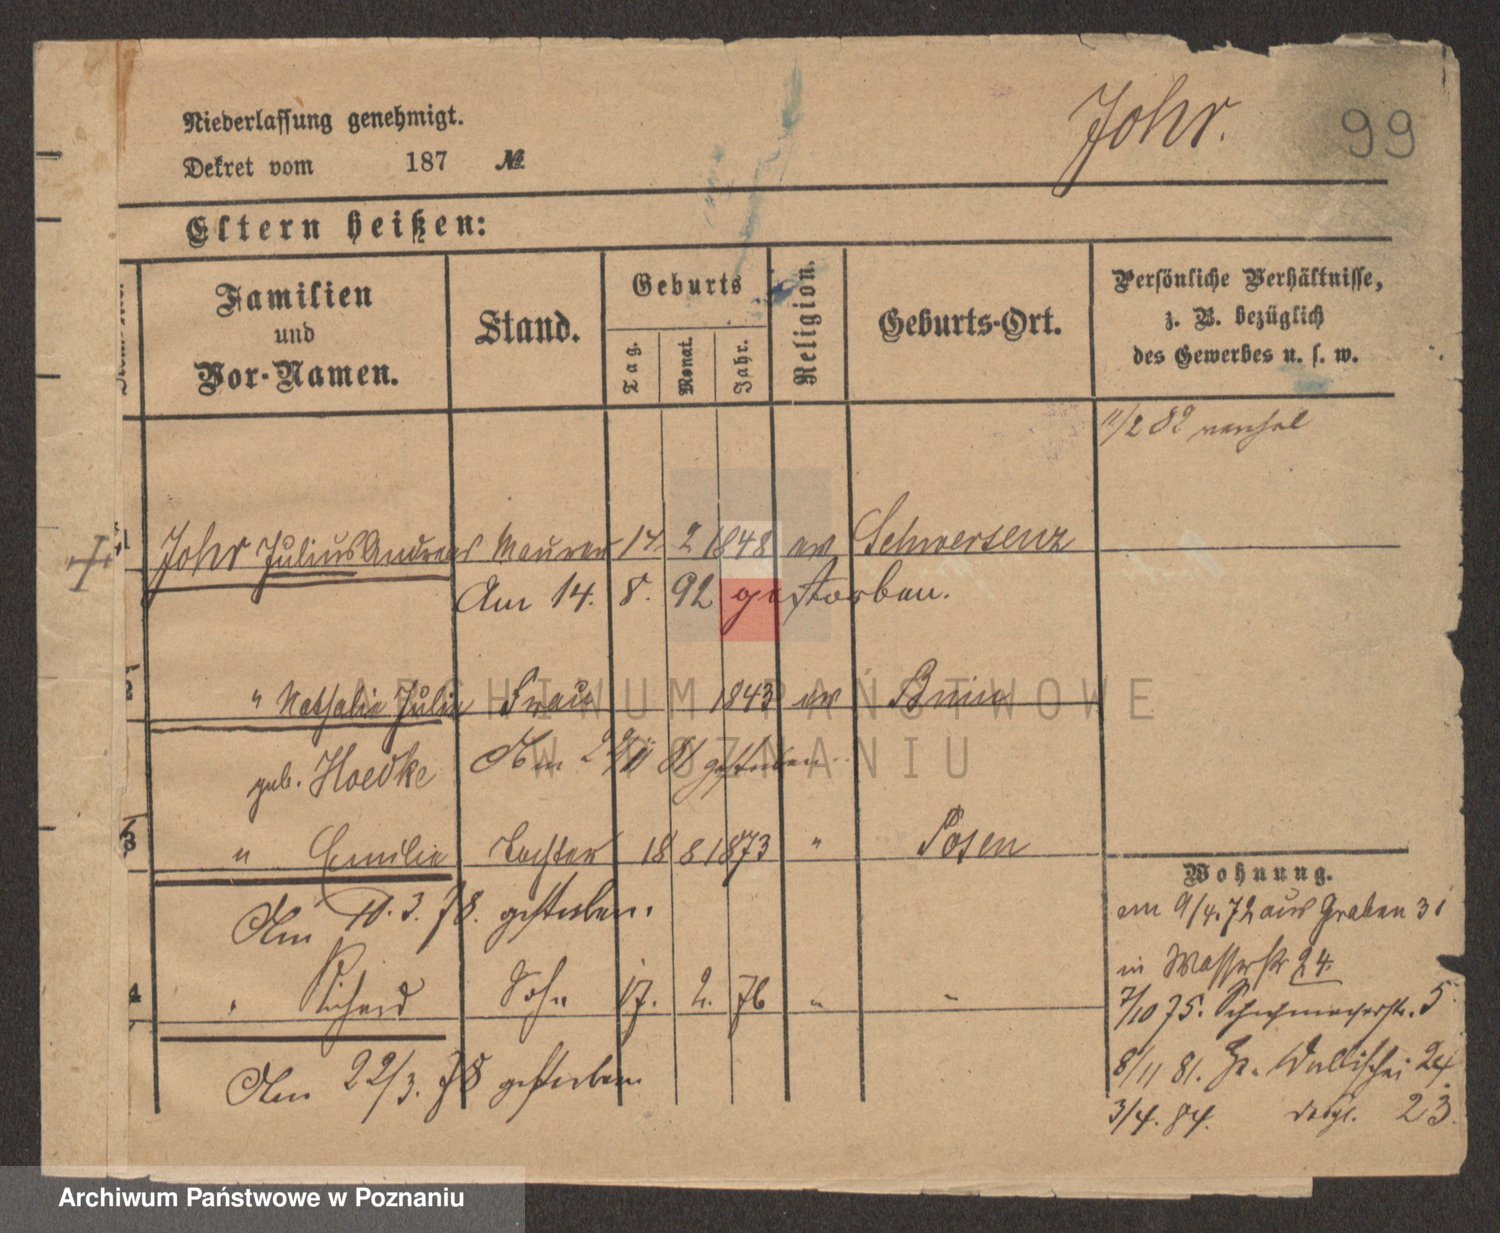 Johr. 99
Niederlassung genehmigt.
Dekret vom 187 №
Eltern heißen:
Familien und Vor-Namen.
Stand.
Geburts
Tag.
Monat.
Jahr.
Religion.
Geburts-Ort.
Persönliche Verhältnisse,
z. B. bezüglich
des Gewerbes u. s. w.
11/2 82
1 Johr Julius Andreas Maurer 17. 2 1848 ev Schwersenz
Am 14. 8. 92 gestorben.
2 " Nathalie Julie Frau 1843 ev Bnin
geb. Hoedke Am 22/11 81 gestorben.
3 " Emilie Tochter 18 8 1873 " Posen
Am 10. 3. 78. gestorben.
4 " Richard Sohn 17. 2. 76 " "
Am 22/3. 78 gestorben
Wohnung.
am 9/4. 72 aus Graben 31
in Wasserstr 24.
7/10 75. Schuhmacherstr. 5
8/11 81. Gr. Wallischei 24
3/4. 84. desgl. 23.
ARCHIWUM PAŃSTWOWE
W POZNANIU
Archiwum Państwowe w Poznaniu